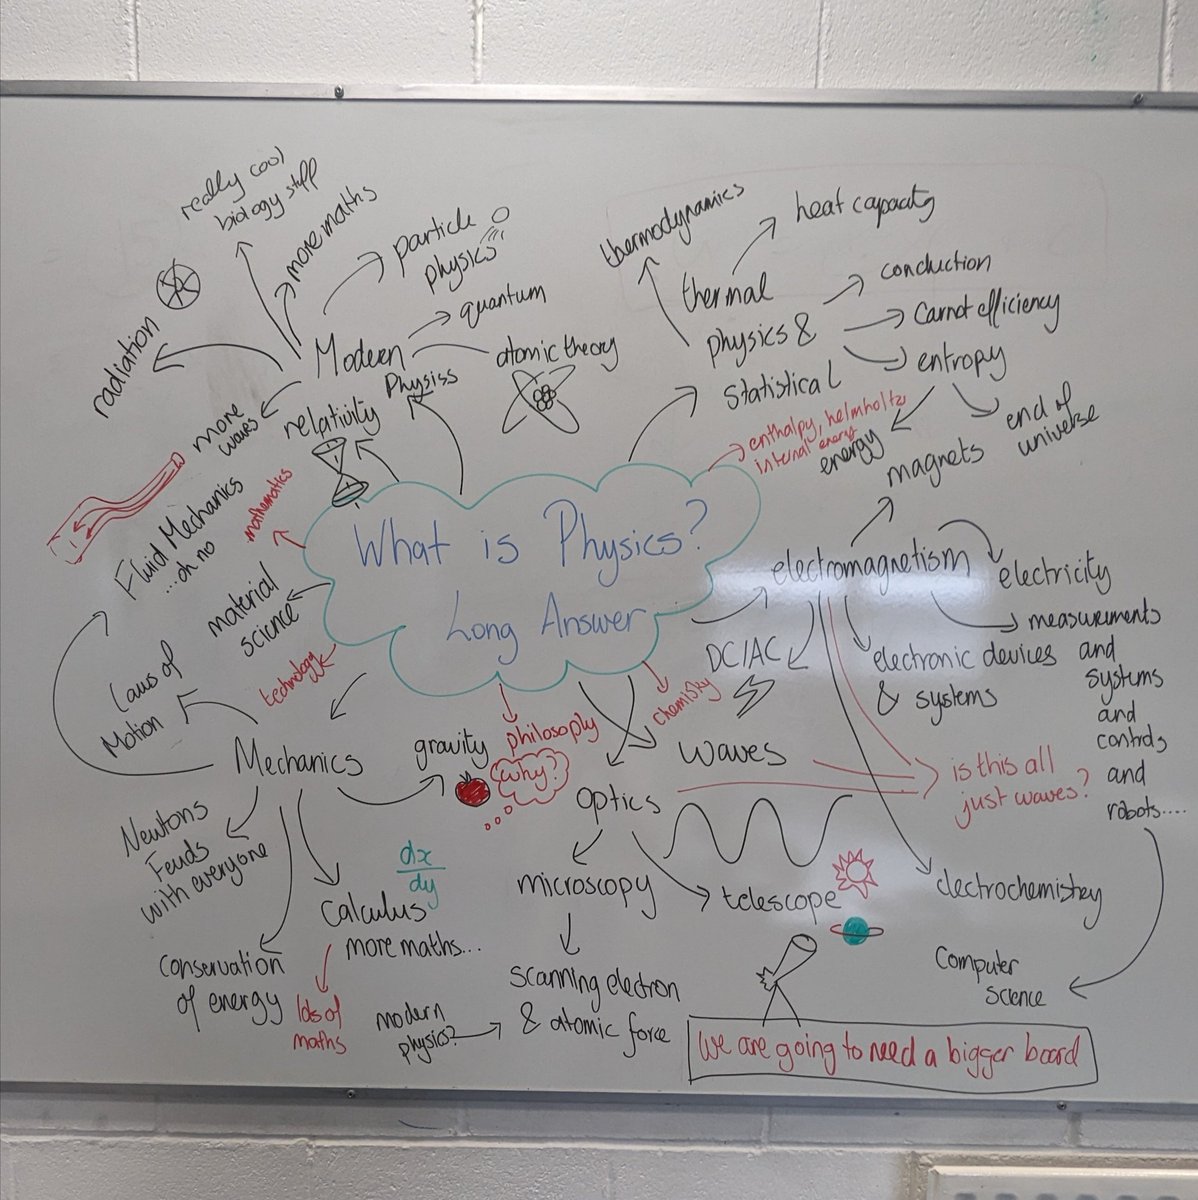 What is Physics?
Long Answer
Modern
Physiss
really cool
biology stuff
more maths
particle
physics
quantum
atomic theory
radiation
more
waves
relativity
mathematics
Fluid Mechanics
...oh no
material
science
technology
thermal
physics &
Statistical
thermodynamics
heat capacity
conduction
Carnot efficiency
entropy
energy
end of
universe
enthalpy, helmholtz
internal energy
electromagnetism
magnets
electricity
measurements
and
systems
and
controls
and
robots....
electronic devices
& systems
DC/AC
electrochemistry
Computer
science
chemistry
philosophy
why?
waves
is this all
just waves?
optics
microscopy
scanning electron
& atomic force
modern
physics?
telescope
Mechanics
laws of
Motion
gravity
Newtons
Feuds
with everyone
conservation
of energy
calculus
more maths...
dx
dy
lots of
maths
We are going to need a bigger board